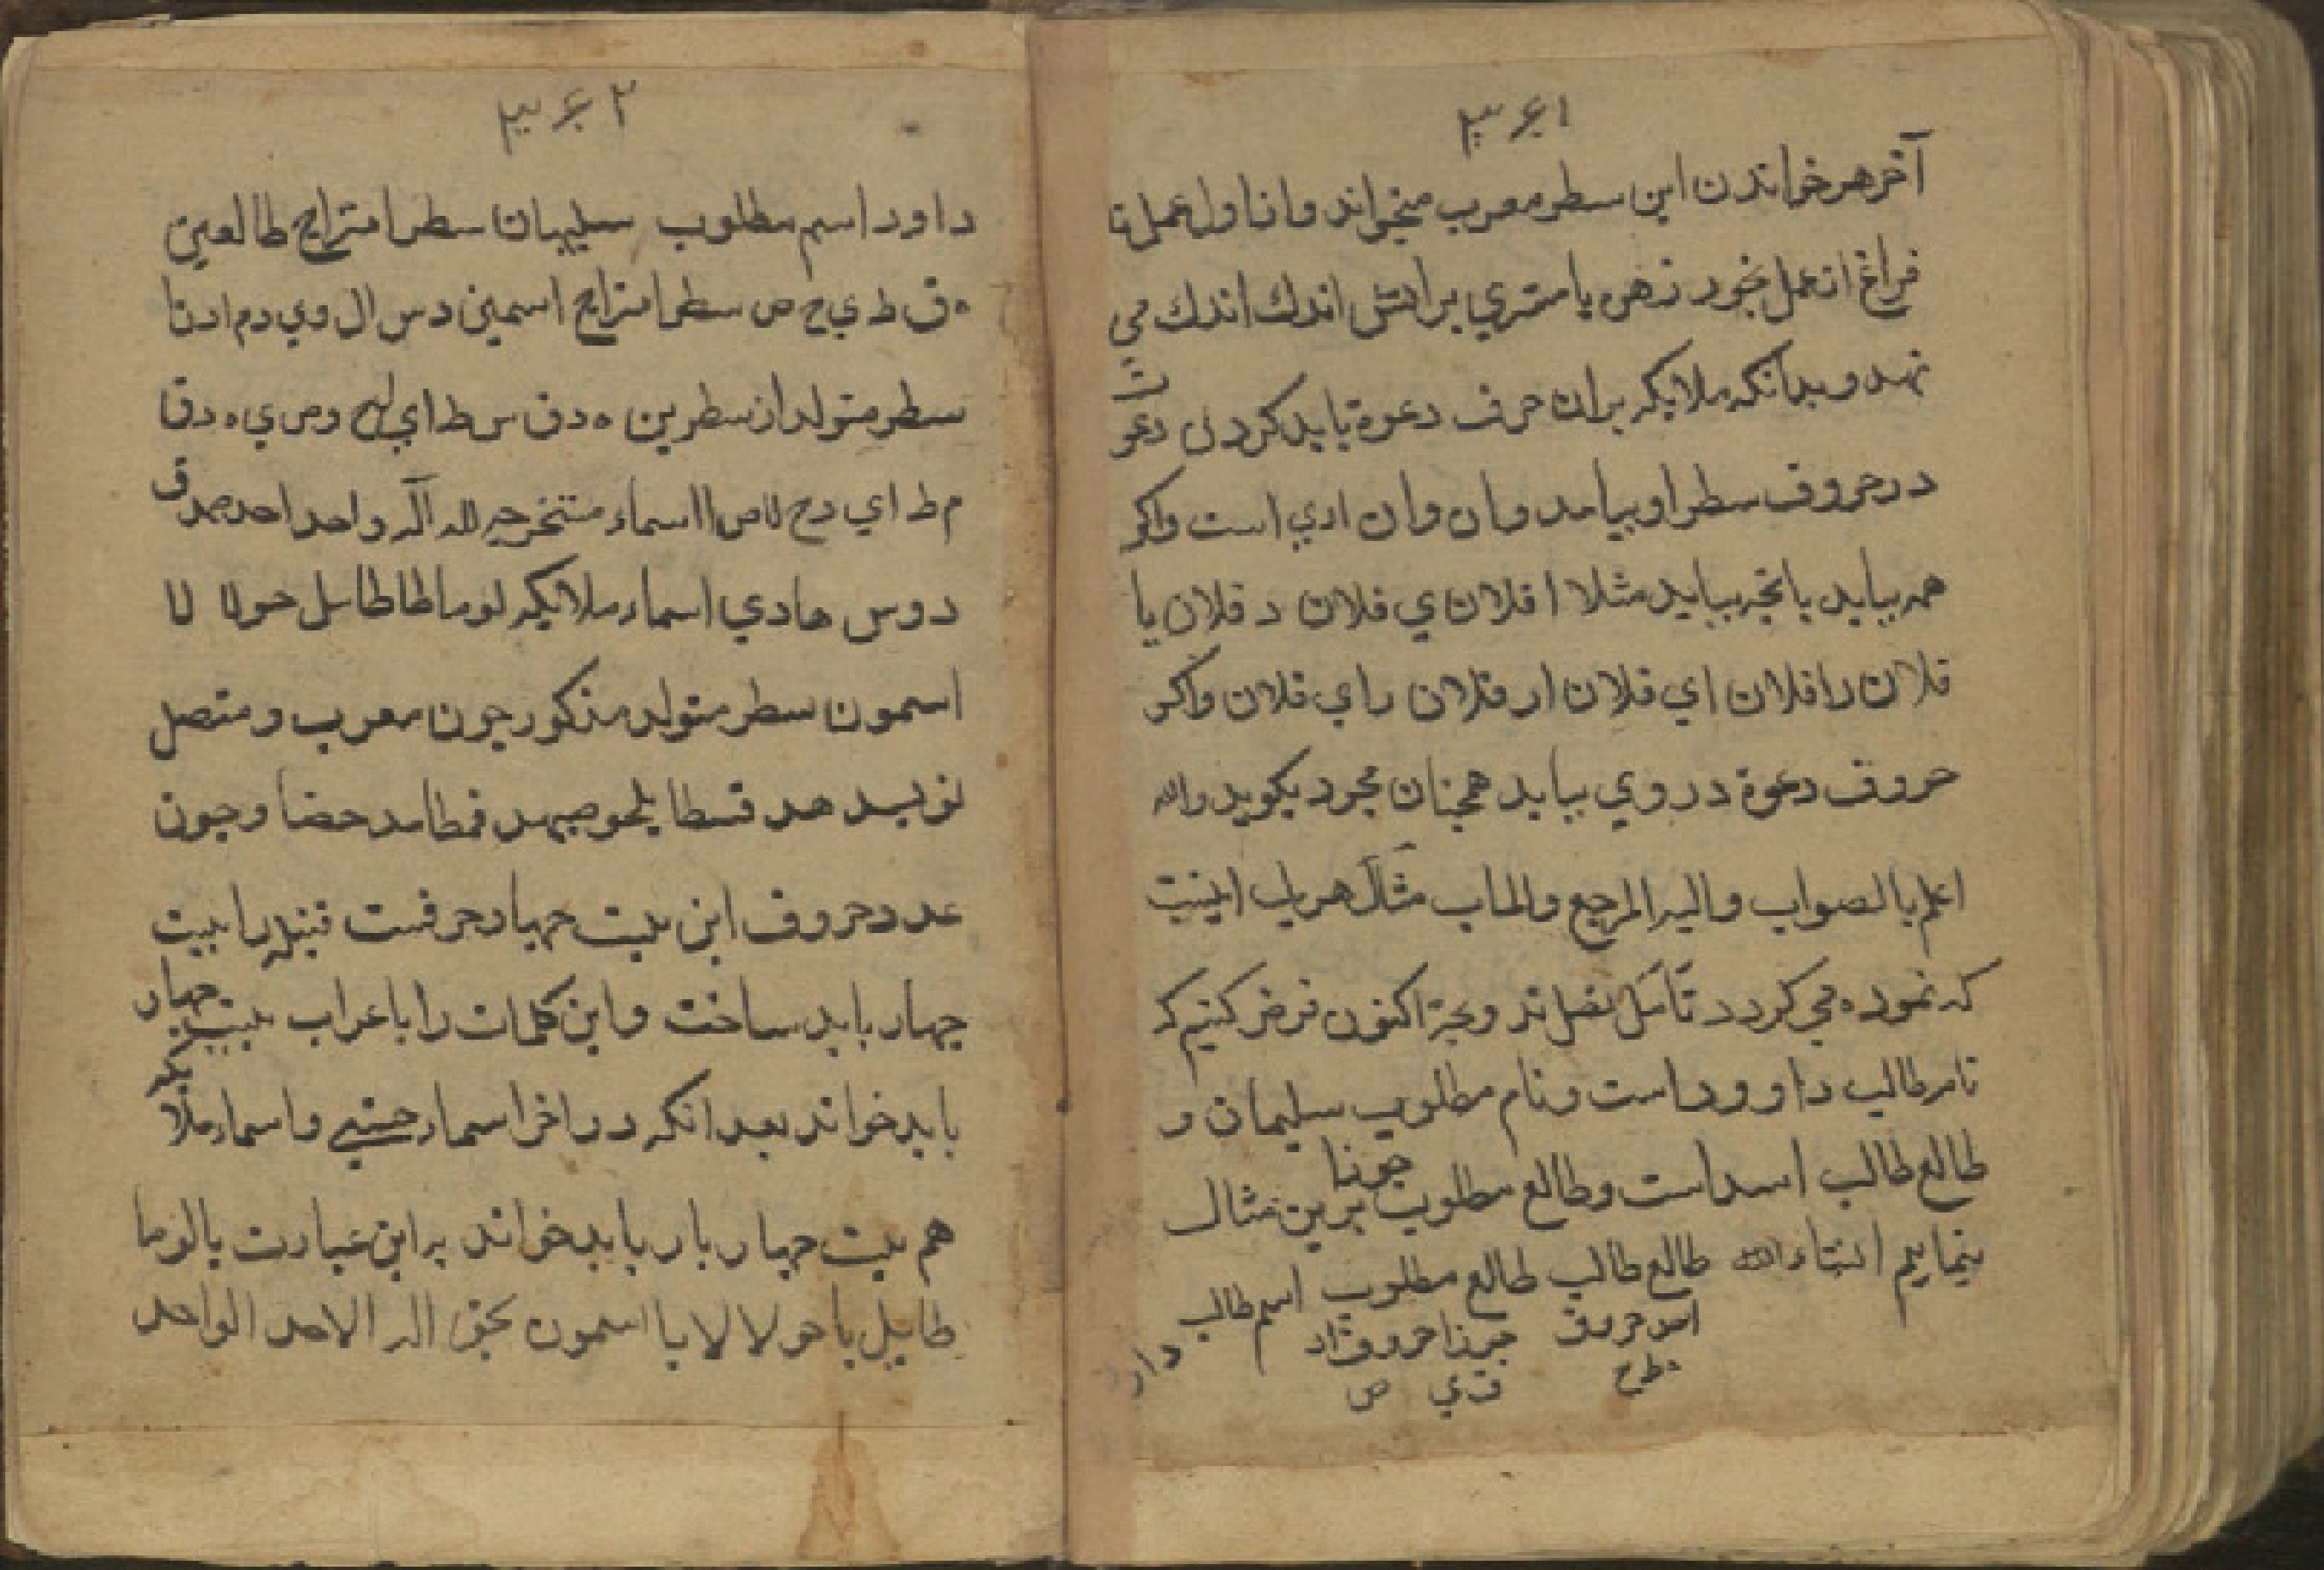 ۳۶۱
آخر هر خواندن این سطر معرب میخواند و از اول عمل تا
فراغ از عمل بخور زهره یا مشتري بر اتش اندك اندك می
نهد و بدانکه ملایکه بران حرف دعوة باید کردن دعوت
در حروف سطر او بیامد وان وان ادي است واکر
همه بیاید یا بخیر بیاید مثلا ا فلان ي فلان د فلان یا
فلان را فلان اي فلان ار فلان راي فلان واکر
حروف دعوة در وي بیاید همچنان مجرد بکوید والله
اعلم بالصواب والیه المرجع والماب مثال هر یك اینست
که نموده می کردد تا اکنون فرض کنیم که
نام طالب داوود است ونام مطلوب سلیمان و
طالع طالب اسد است وطالع مطلوب جوزا برین مثال
بنماییم انشاء الله طالع طالب طالع مطلوب اسم طالب
اسد حروف جوزا حروف اد
ه ط ح ق ي ص
۳۶۲
داود اسم مطلوب سلیمان سطر امتزاج طالعین
ه ق ط ي ح ص سطر امتزاج اسمین د س ال و ي د م ا د نا
سطر متولد از سطرین ه د ق س ط ا ي ل ح و ص ي ه د ق ا
م ط ا ي د ح لا ص ا اسماء مستخرجه الله اله واحد احد صمد ق
دوس هادي اسماء ملایکه لوما طاطاىل حولا لا
اسمون سطر متولد مذکور چون معرب و متصل
نویسد هدقسطا یلحوصیهد قمطاىد حضا وچون
عدد حروف این بیت چهار حرفست فتیله را بیست
چهار باید ساخت واین کلمات را با عراب بیست چهار
باید خواند بعد انکه در اخر اسماء حسنی واسماء ملا
هم بیست چهار بار باید خواند بر این عبارت یا لوما
طاییل یا حولا لا یا اسمون بحق اله الاحد الواحد